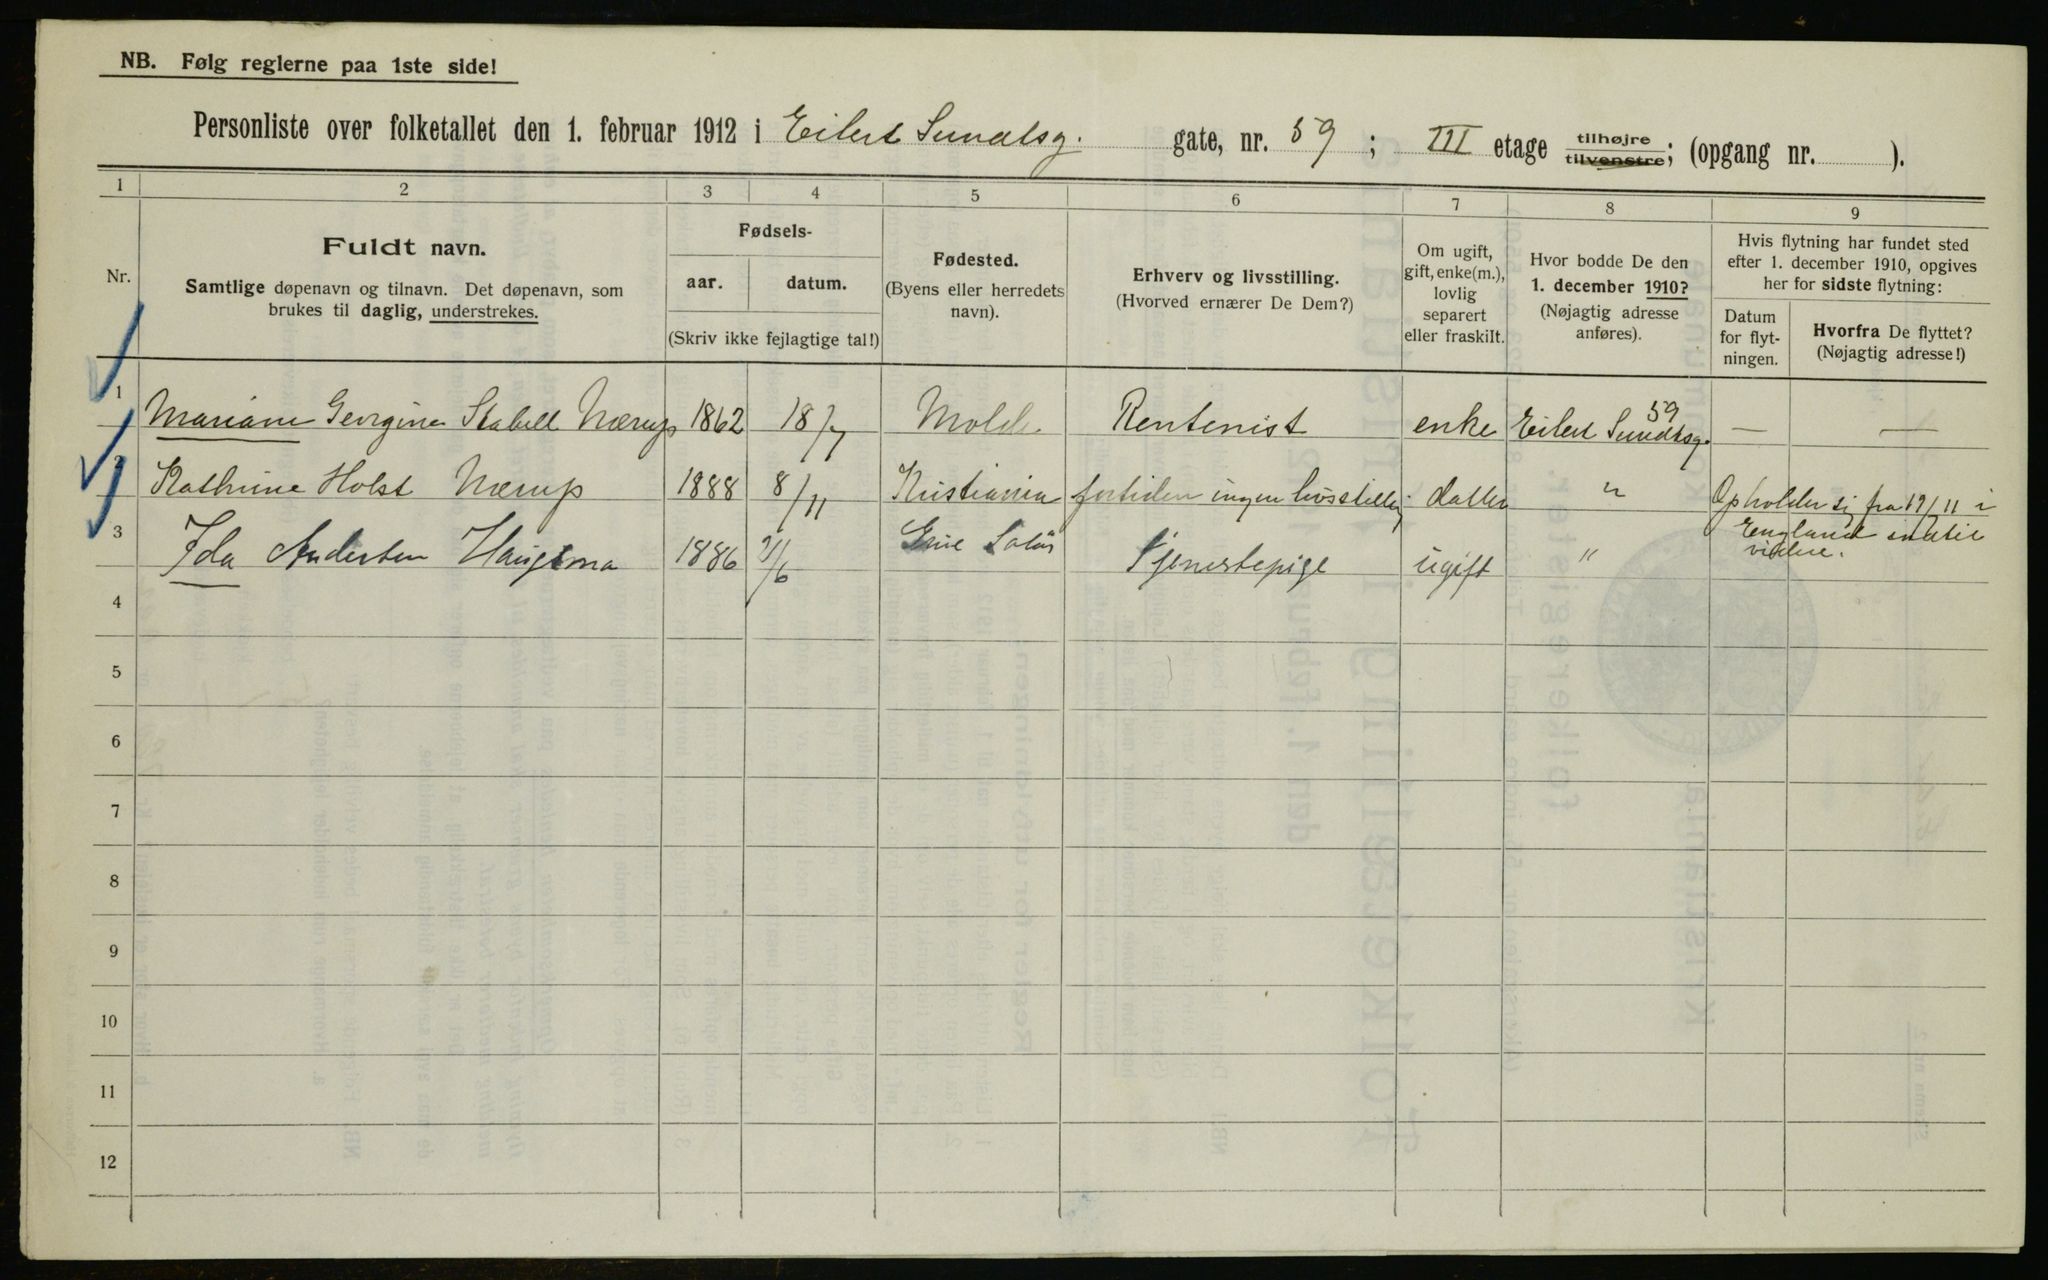 NB. Følg reglerne paa 1ste side!
Personliste over folketallet den 1. februar 1912 i Eilert Sundtsg. gate, nr. 59; III etage tilhøjre tilvenstre; (opgang nr. ).
1 2 3 4 5 6 7 8 9
Nr.
Fuldt navn.
Samtlige døpenavn og tilnavn. Det døpenavn, som
brukes til daglig, understrekes.
Fødsels-
aar. datum.
(Skriv ikke fejlagtige tal!)
Fødested.
(Byens eller herredets
navn).
Erhverv og livsstilling.
(Hvorved ernærer De Dem?)
Om ugift,
gift, enke(m.),
lovlig
separert
eller fraskilt.
Hvor bodde De den
1. december 1910?
(Nøjagtig adresse
anføres).
Hvis flytning har fundet sted
efter 1. december 1910, opgives
her for sidste flytning:
Datum
for flyt-
ningen.
Hvorfra De flyttet?
(Nøjagtig adresse!)
1 Mariane Georgine Stabell Nærup 1862 18/7 Molde Rentenist enke Eilert Sundtsg. 59 — —
2 Kathrine Holst Nærup 1888 8/11 Kristiania fortiden ingen livsstilling datter " Opholder sig fra 17/11 i
England indtil
videre.
3 Ida Andersen 1886 Grue Solør Tjenestepige ugift "
4
5
6
7
8
9
10
11
12